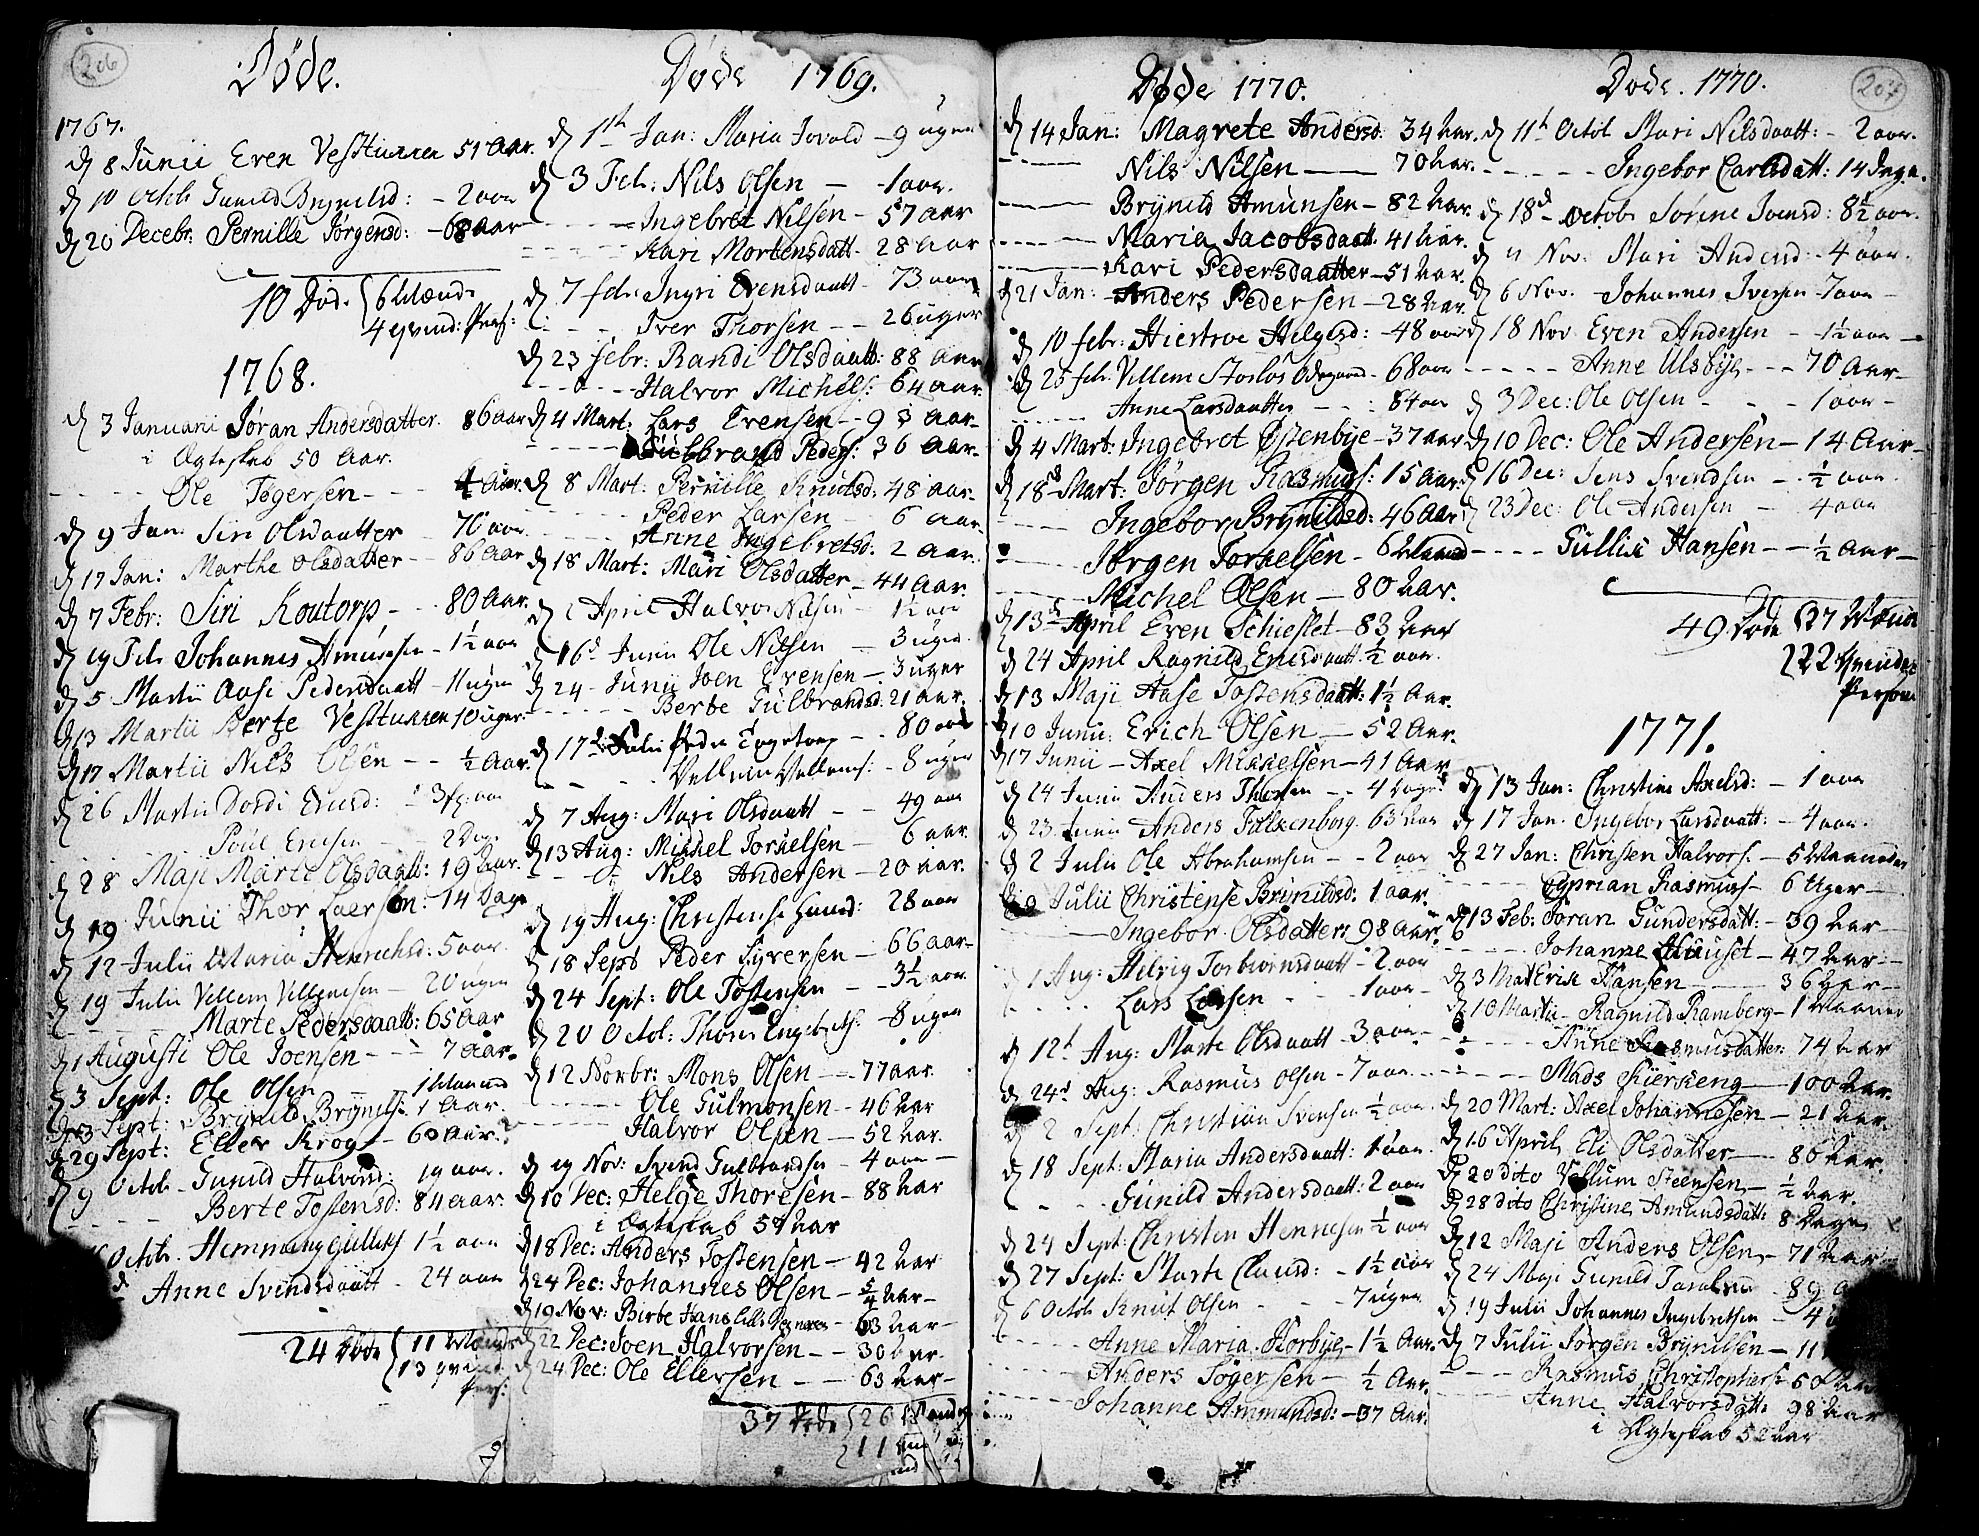 206
Døde.
1767.
d 8 Junii Even Vesttuxen 51 Aar.
d 10 Octob Gunild Brynilsd: - 2 aar
d 20 Decebr: Pernille Jørgensd: - 68 Aar
10 Død. { 6 Mænd
4 qvind: Pers:
1768.
d 3 Januarii Jøran Andersdatter. 86 aar
i Ægteskab 50 Aar.
Ole Togersen - 4 Aar.
d 9 Jan Siri Olsdaatter 76 aar
d 17 Jan: Marthe Olsdatter - 86 Aar
d 7 Febr: Siri Koutorp - 80 Aar.
d 19 Feb Johannes Amunsen - 1½ aar
d 5 Martii Aase Pedersdaatt - 11 ugen
d 13 Martii Berte Vesttuxen 10 uger.
d 17 Martii Nils Olsen - - ½ Aar.
d 26 Martii Dordi Ericsd:
Poul Ericsen - 2 Dage
d 28 Maji Marte Olsdaatt: 19 Aar.
d 19 Junii Thor Laersen: 14 Dage
d 12 Julii Maria Henrichsd: 5 aar.
d 19 Julii Vellem Vellemsen - 20 ugen
Marte Pedersdaatt: 65 Aar
d 1 Augusti Ole Joensen - - 7 Aar.
d 3 Sept: Ole Olsen - 1 Maaned
d 23 Sept: Brynild Brynilss. 1 Aar.
d 29 Sept: Eller Krog - 60 Aar.
d 9 Octob - Gunild Halvorsd. 19 aar.
Berte Tostensd: 84 aar.
Octob. Hemming Gulliks 1½ aar
Anne Svendsdaatt - 24 aar
24 Døde { 11 Mænds
13 qvind
Pers:
Døde 1769.
d 1th Jan: Maria Jovald - 9 ugen
d 3 Feb: Nils Olsen - 1 aar.
Ingebret Nilsen - 57 Aar
Kari Mortensdatt - 28 Aar
d 7 feb: Ingri Evensdaatt - 73 aar
Iver Thorsen - - 26 uger
d 23 febr: Randi Olsdaatt: 88 Aar
Halvor Michels: 64 Aar.
d 4 Mart: Lars Evensen - 93 Aar.
Gulbrand Peders: 36 Aar.
d 8 Mart: Pernille Knutsd: 48 aar.
Peder Larsen - 6 Aar.
Anne Ingebretsd: 2 Aar.
d 18 Mart: Mari Olsdatter - 44 Aar.
d April Halvor Nilsen - 1½ aar
d 16d Junii Ole Nilsen - 3 uger.
d 24 - Junii Joen Evensen - 3 uger
Berbe Gulbrandsd. 21 aar.
d 17d Julii Peder Engetorp - 80 aar
Vellum Vellems: - 8 ugen
d 7 Aug: Mari Olsdaatt - 49 aar
d 13 Aug: Mickel Torkelsen - 6 aar.
Nils Andersen - 20 aar.
d 19 Aug: Christense Gund: 28 aar
d 18 Sept Peder Syversen - 66 aar -
d 24 Sept: Ole Tostensen - - 3½ aar.
d 20 Octob: Thores Engebrets. - 8 ugen
d 12 Novbr: Mons Olsen - 77 aar.
Ole Gulmonsen - 46 Aar
Halvor Olsen - 52 Aar.
d 19 Nov: Svend Gulbrandsen - 4 aar -
d 10 Dec: Helge Thoresen - 88 Aar
i Ægteskab 58 Aar
d 18 Dec: Anders Tostensen - 42 Aar
d 24 Dec: Johannes Olsen - 5/4 Aar -
d 19 Nov: Birbe Hans - 63 Aar -
d 22 Dec: Joen Halvorsen - - 30 Aar.
d 24 Dec: Ole Ellersen - - 63 Aar -
37 Døde { 26 Mands
{ 11
207
Døde 1770.
d 14 Jan: Magrete Andersd: 34 Aar.
Nils Nilsen - 70 Aar.
Brynild Amunsen - 82 Aar.
Maria Jacobsdaatt. 41 Aar.
Kari Pedersdaatter - 51 Aar.
d 21 Jan: Anders Pedersen - 28 Aar.
d 10 febr: Hiertroe Helgesd: - 48 aar
d 25 feb: Villem Stoslos Odegaard - 68 aar
Anne Larsdaatter - - 84 aar
d 4 Mart: Ingebret Østenbye - 37 aar
d 18d Mart: Jørgen Rasmuss: 15 aar
Ingebor Brynildsd: 46 Aar
Jørgen Torkelsen - 6 Maaned
Michel Olsen - 80 Aar.
d 13d April Even Schieslet - 83 Aar
d 24 April Ragnild Enersdaatt. ½ aar.
d 13 Maji Aase Tostensdaatt: 1½ Aar.
d 10 Junii: Erich Olsen - 52 Aar.
d 17 Junii - Axel Mikkelsen - 41 Aar
d 24 Junii Anders Thorsen - - 4 Dage
d 23 Junii Anders Falkenborg. 63 Aar
d 2 Julii Ole Abrahamsen - - 2 aar
d 9 Julii Christense Brynildsd. 1 aar.
Ingebor Olsdatter 98 Aar.
d 1 Aug: Helvig Torbiornsdaatt - 2 aar
Lars Larsen - 1 aar -
d 12t Aug: Marte Olsdaatt - 3 aar -
d 24d Aug: Rasmus Olsen - 7 aar.
d 2 Sept: Christian Svensen ½ aar.
d 18 Sept: Maria Andersdaatt: 1 aar.
Gunild Andersdaatt: 2 aar
d 24 Sept: Christen Hennesen ½ aar
d 27 Sept: Marte Clausd: - 1½ aar
d 6 Octob Knut Olsen - - 7 ugen
Anne Maria Korbye - 1½ Aar.
Anders Togersen - ½ Aar.
Johanne Ammundsd: - 37 Aar.
Døde. 1770.
d 11t Octob Mari Nilsdaatt: - 2 aar.
Ingebor Carlsdatt: 14 Dage.
d 18d Octob: Sørine Ivensd: 8½ aar.
d 11 Nov: Mari Andersd: - 4 aar.
d 6 Nov. Johannes Iversen - 7 aar -
d 18 Nov Even Andersen - 1½ aar
Anne Ulsbye - - - 70 Aar -
d 3 Dec: Ole Olsen - - - 1 aar -
d 10 Dec: Ole Andersen - 14 Aar -
d 16 Dec: Jens Svendsen - ½ aar.
d 23 Dec: Ole Andersen - 4 aar
Gullik Hansen - - ½ Aar -
49 Døde 27 Mænd
22 Qvinder
Person
1771.
d 13 Jan: Christine Axelsd: - 1 aar
d 17 Jan. Ingebor Larsdaatt: - 4 aar.
d 27 Jan: Christen Halvors. - 5 Maaneder
Cyprian Rasmuss - 6 Uger -
d 13 Feb: Joran Gundersdatt: - 39 Aar -
Johanne Huuset - 47 Aar -
d 3 Mart Erik Hansen - 36 Aar -
d 10 Martii - Ragnild Ramberg - 1 Maaned
Anne Rasmusdatter: 74 Aar
Mads Kierkeng - 100 Aar.
d 20 Mart: Axel Johannesen - 21 Aar.
d 16 April Eli Olsdatter - 86 Aar.
d 20 dito Vellum Steensen - ½ Aar.
d 28 dito Christine Amundsdatt: 8 Dage
d 12 Maji Anders Olsen - 71 Aar
d 24 Maji Gunild Taralsen - 89
d 19 Julii Johannes Ingebretsen - 4
d 7 Julii Jørgen Brynilsen - 11
Rasmus Christophers: 50 Aar
Anne Halvorsdatt: 98 Aar
i Ægteskab 52 Aar